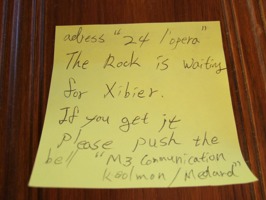 adress "24 l'opera"
The Rook is waiting
for Xibier.
If you get it
please push the
bell "M3 Communication
Koolmon / Medard"